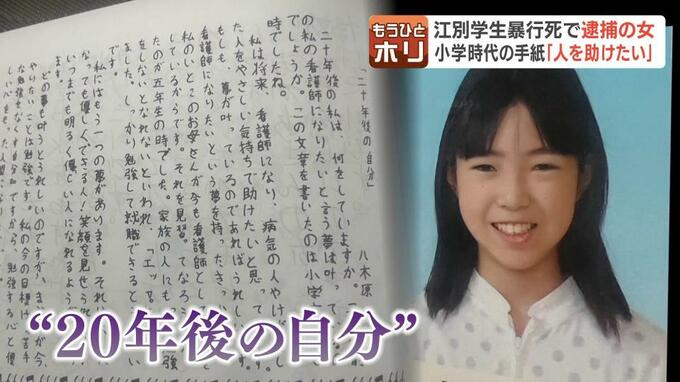 もうひと
ホリ
江別学生暴行死で逮捕の女
小学時代の手紙「人を助けたい」
二十年後の自分」
八木原
二十年後の私は、何をしていますか。こ
の私の看護師になりたいと言う夢は叶って
でしょうか。この文章を書いたのは小学
時でしたね。
私は将来、看護師になり、病気の人やけが
た人をやさしい気持ちで助けたいと思って
もしも、夢が叶っているのであればうれし
看護師になりたいという夢を持ったきっ
私のいとこのお母さんが今も看護師とし
しているからです。それを見習ってなろ
たのが五年生の時でした。家族の人にも
しないとなれないといわれ、「エッ
ました。しっかり勉強して就職できると
私にはもう一つの夢があります。それ
なでも優しくできる人！笑顔を見せられ
いつまでも明るく優しい人になれるよう
どの夢も叶うとうれしいのですが、まだ今
やりたいことは勉強です。私の今の目標は、苦手
な勉強をなくす自分ですから、勉強する心と優
しい心をもった人間
“20年後の自分”